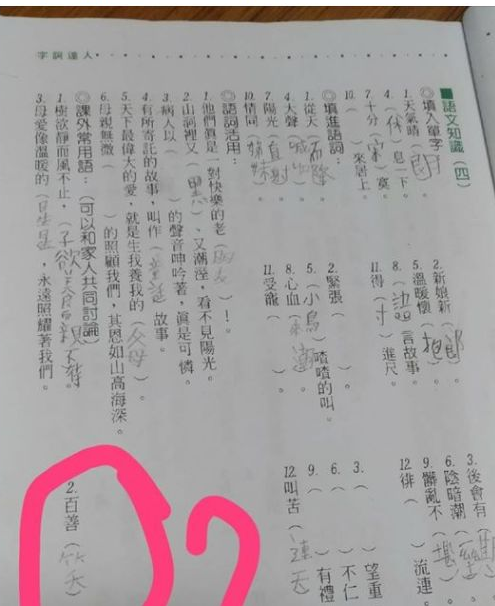 字詞達人
■語文知識(四)
◎填入單字:
1.天氣晴(朗) 2.新娘新(郎) 3.後會有( )
4.(休)息一下。 5.溫暖懷(抱)。 6.陰暗潮( )。
7.十分( )寞。 8.( )言故事。 9.髒亂不(堪)。
10.( )來居上。 11.得(寸)進尺。 12.徘( )流連。
◎填進語詞:
1.從天(而降)。 2.緊張( )。 3.( )望重
4.大聲( )。 5.(小鳥)喳喳的叫。 6.( )不仁
7.陽光( )。 8.心血( )。 9.( )有禮
10.情同(姊妹)。 11.受寵( )。 12.叫苦(連天)
◎語詞活用:
1.他們真是一對快樂的老( )!。
2.山洞裡又(黑)、又潮溼,看不見陽光。
3.病人以( )的聲音呻吟著,真是可憐。
4.有所寄託的故事,叫作(童話)故事。
5.天下最偉大的愛,就是生我養我的(父母)。
6.母親無微( )的照顧我們,其恩如山高海深。
◎課外常用語:(可以和家人共同討論)
1.樹欲靜而風不止,(子欲 親 )。 2.百善(竹天)
3.母愛像溫暖的( ),永遠照耀著我們。